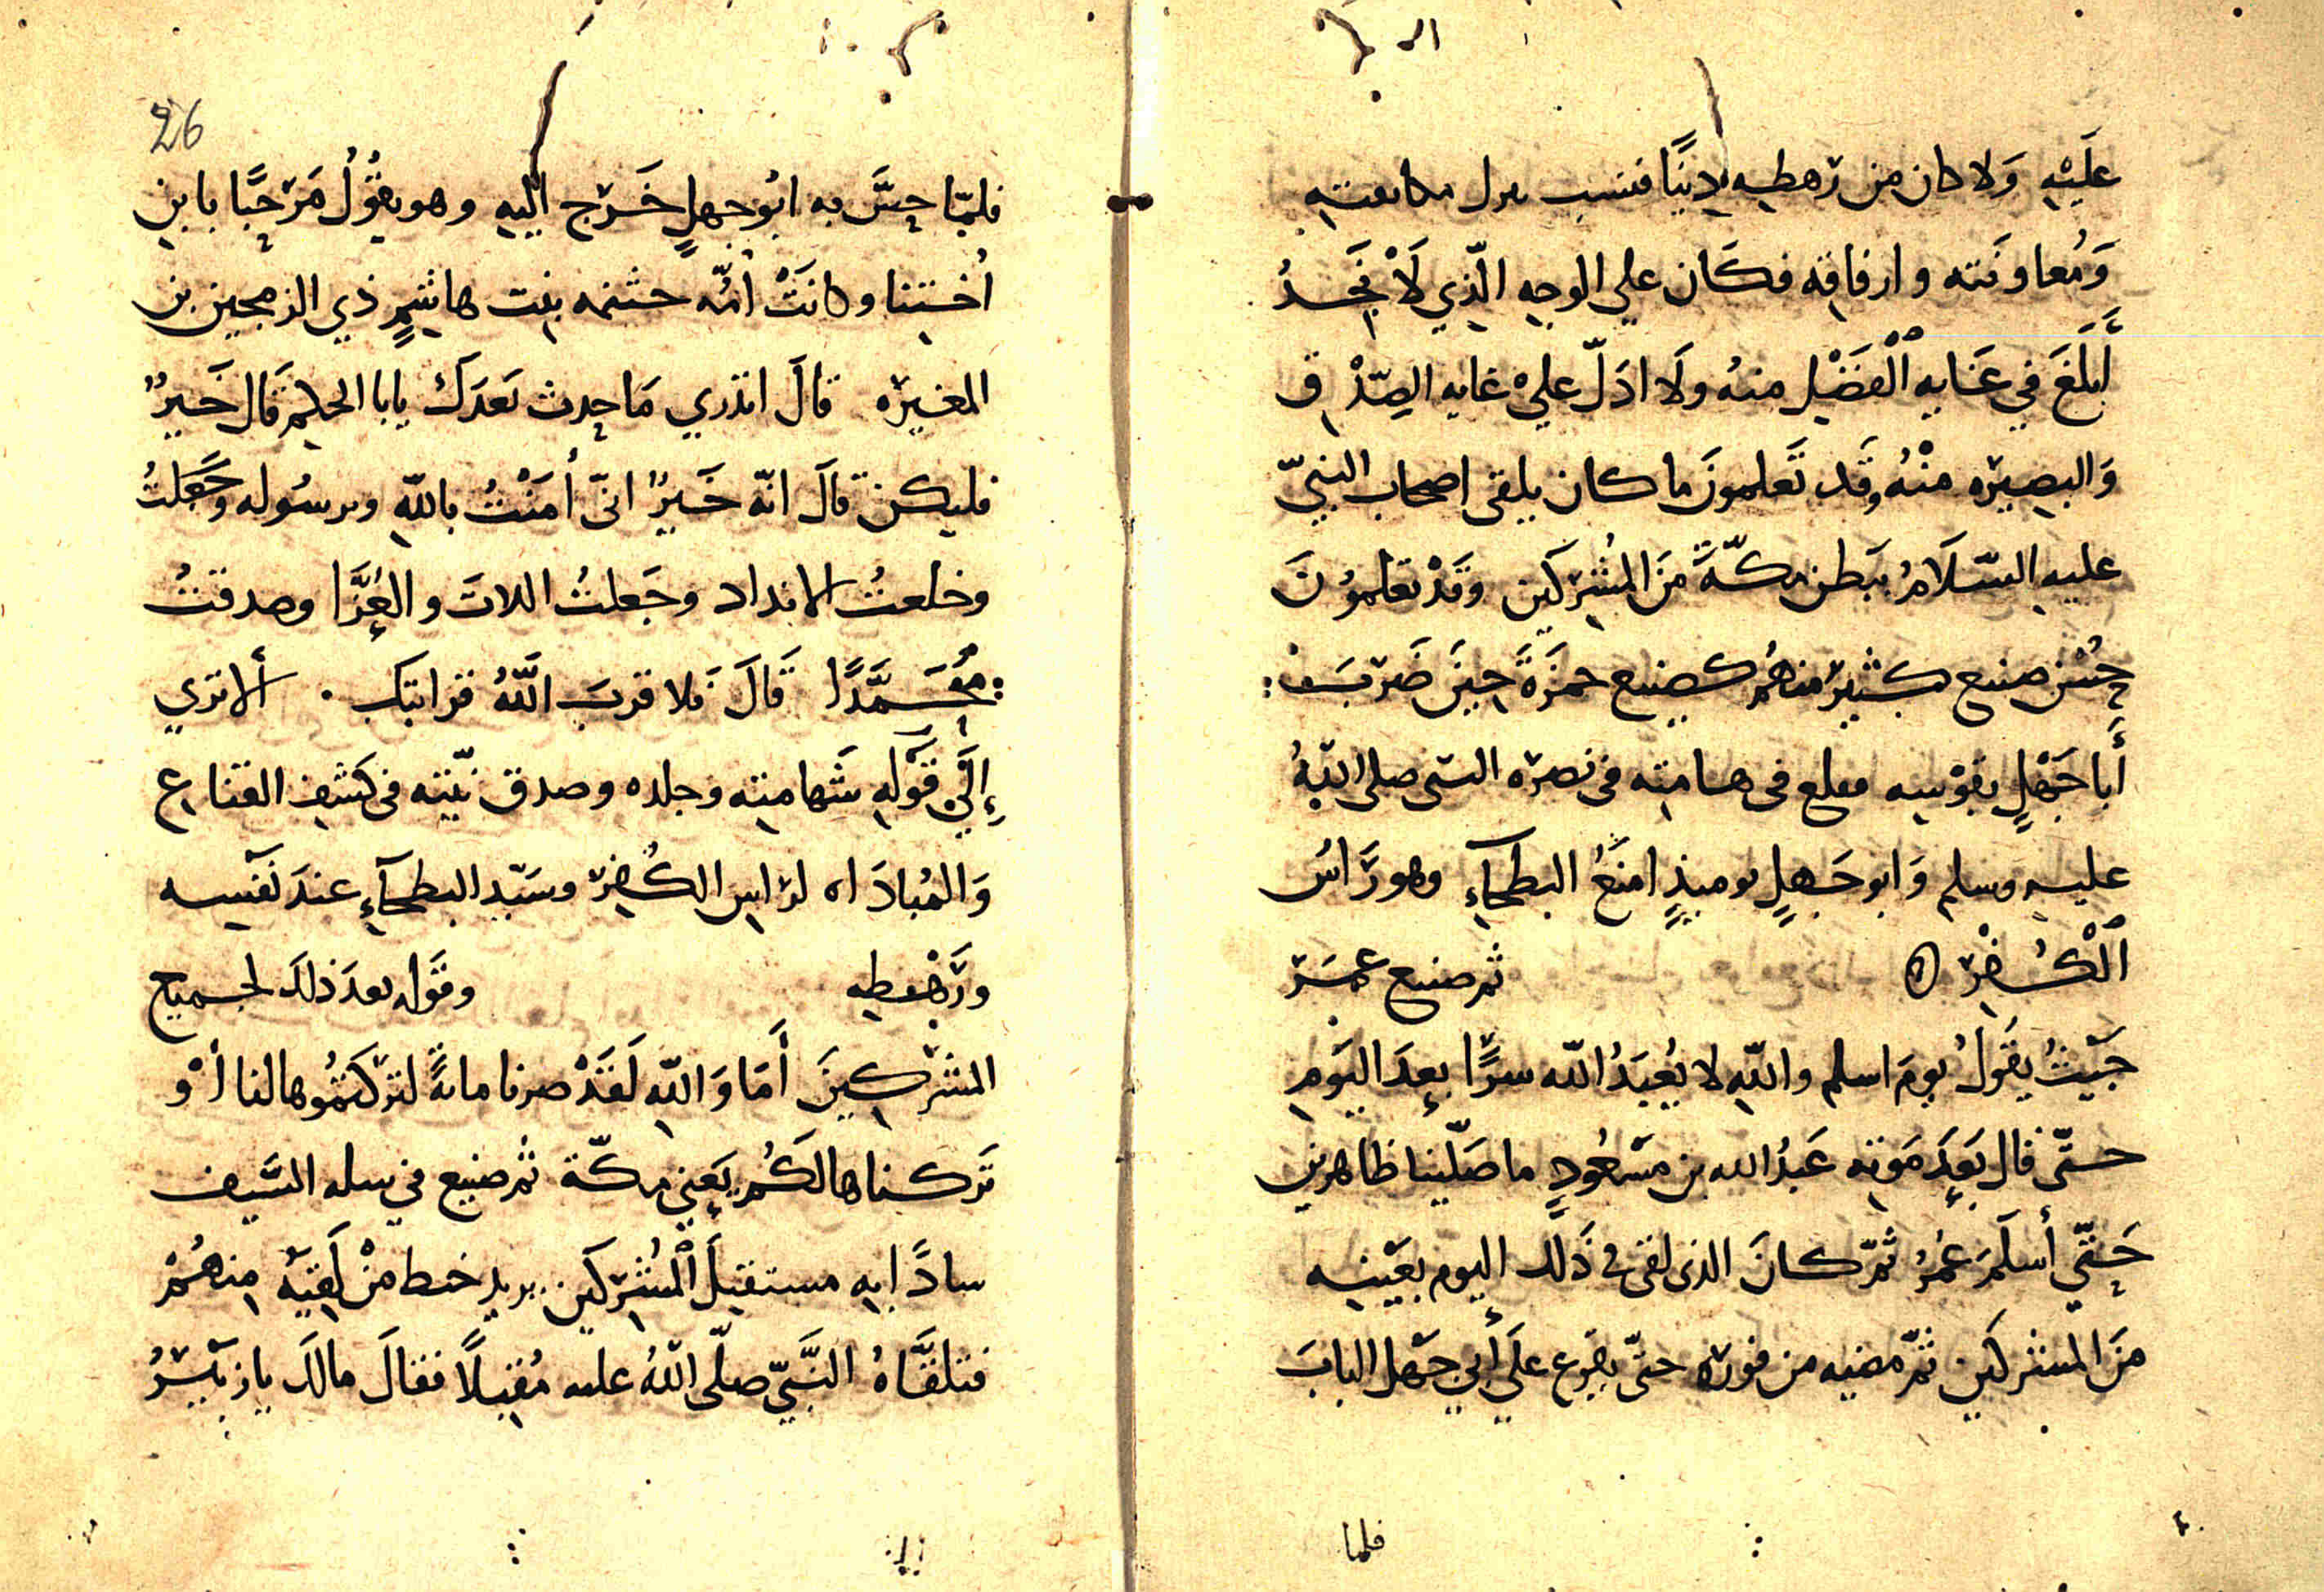 عَلَيْهِ وَلا كان من رَهطِهِ دِنيًا فنسب بدل مكانفته
وَمُعاوَنَته وارفاقِه فكَان علي الوجهِ الّذِي لَا نَجِدُ
أَبلَغَ فِي عَنَايِه ٱلْفَضْلِ منهُ ولَا ادَلّ عليْ غايه الصِّدْق
وَالبصِيرَه منْهُ وقَد تَعلمونَ ما كان يلقى اصحاب النبيّ
عليهِ السّلَامُ ببَطنِ مكّةَ منَ المُشرِكَين وقَدْ تعلموُنَ
حُسْن صنيع كثير منهُم كصنِيع حمزَةَ حِينَ ضَربَ
أَبا جَهْلٍ بقوْسِه فى هامته فى نصرَه النبى صلى اللهُ
عليهِ وسلم وَابو جَهلٍ يوميذٍ امنَعُ البطحآءِ وهو رَاسُ
ٱلْكُفْر ه ثم صنيع عمَر
حَيثُ يقَولُ يومَ اسلم واللهِ لا يُعبَدُ اللّه سرًّا بعدَ اليَومِ
حتّى قال بَعدَ مَوته عَبدُ الله بن مَسْعُودٍ ما صَلّينا ظاهرين
حَتّي أسلَمَ عُمرُ ثمّ كانَ الذى لقى في ذَلك اليوم بعَيْنِه
منَ المشركَين ثمّ مضيه من فوره حتّى يقرَع علَي أبِي جَهْل البابَ
فلما
26
فلمّا حِسَّ به ابُو جهلٍ خَرَج اليهِ وهو يقُولُ مَرْحبًا بابن
أختِنا وكانَتْ أمّه حنتمه بنِت هاشِمٍ ذي الرمحين بن
المغيره قالَ اتدري مَا حدث بَعدَك يابا الحكم قَال خَيرٌ
فليكن قالَ انّه خَيرٌ انّى أمَنْتُ باللّهِ وبرسُوله وَجَعَلتُ
وخلعتُ الانداد وجَعلتُ اللاتَ والعُزَّا وصدقتُ
مُحَمَّدًا قَالَ فلا قربَ اللَّهُ قرابتك . ألا تري
إلَي قَوْلِهِ شَهامِته وجلده وصدق نيّته فى كَشفِ القناع
وَالمُبادَاه لرَاسِ الكُفر وسَيّد البطحآءِ عندَ نفسِه
ورَهْطِه وقَوله بعدَ ذلكَ لجميع
المشركِينَ أمَا وَاللهِ لَقَدْ صرنا مائةً لتركتمُوها لنا أوْ
تَركناها لكُم يَعني مكّة ثم صنيع في سله السَّيف
سادًّا به مستقبلَ ٱلمُشركَين يريد خبط منْ لَقِيَهُ منهُمْ
فتلقَّاهُ النَّبيّ صلّى اللهُ عليه مُقبلًا فقالَ مالكَ يا زبَيْرُ